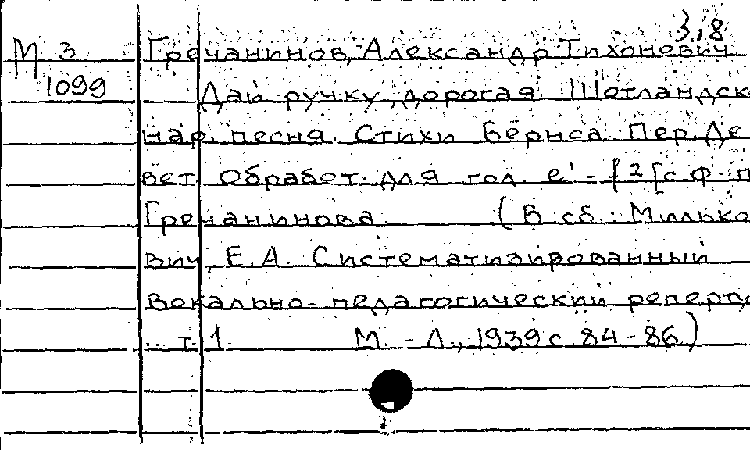 3.18
М 3 Гречанинов, Александр Тихонович
1099 Дай ручку, дорогая. Шотландск
нар. песня. Стихи Бернса. Пер. Де
вет. Обработ. для гол. e'- f2 [с ф-п
Гречанинова (В сб.: Милько
вич, Е.А. Систематизированный
вокально-педагогический реперту
т. 1 М. - Л., 1939 с 84-86)